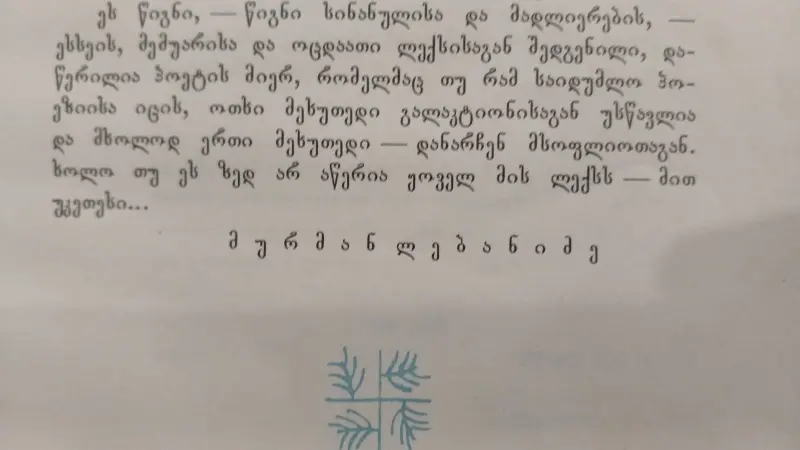 ეს წიგნი, — წიგნი სინანულისა და მადლიერების, —
ესსეის, მემუარისა და ოცდაათი ლექსისაგან შედგენილი, და-
წერილია პოეტის მიერ, რომელმაც თუ რამ საიდუმლო პო-
ეზიისა იცის, ოთხი მეხუთედი გალაკტიონისაგან უსწავლია
და მხოლოდ ერთი მეხუთედი — დანარჩენ მსოფლიოთაგან.
ხოლო თუ ეს ზედ არ აწერია ყოველ მის ლექსს — მით
უკეთესი...
მ უ რ მ ა ნ ლ ე ბ ა ნ ი ძ ე